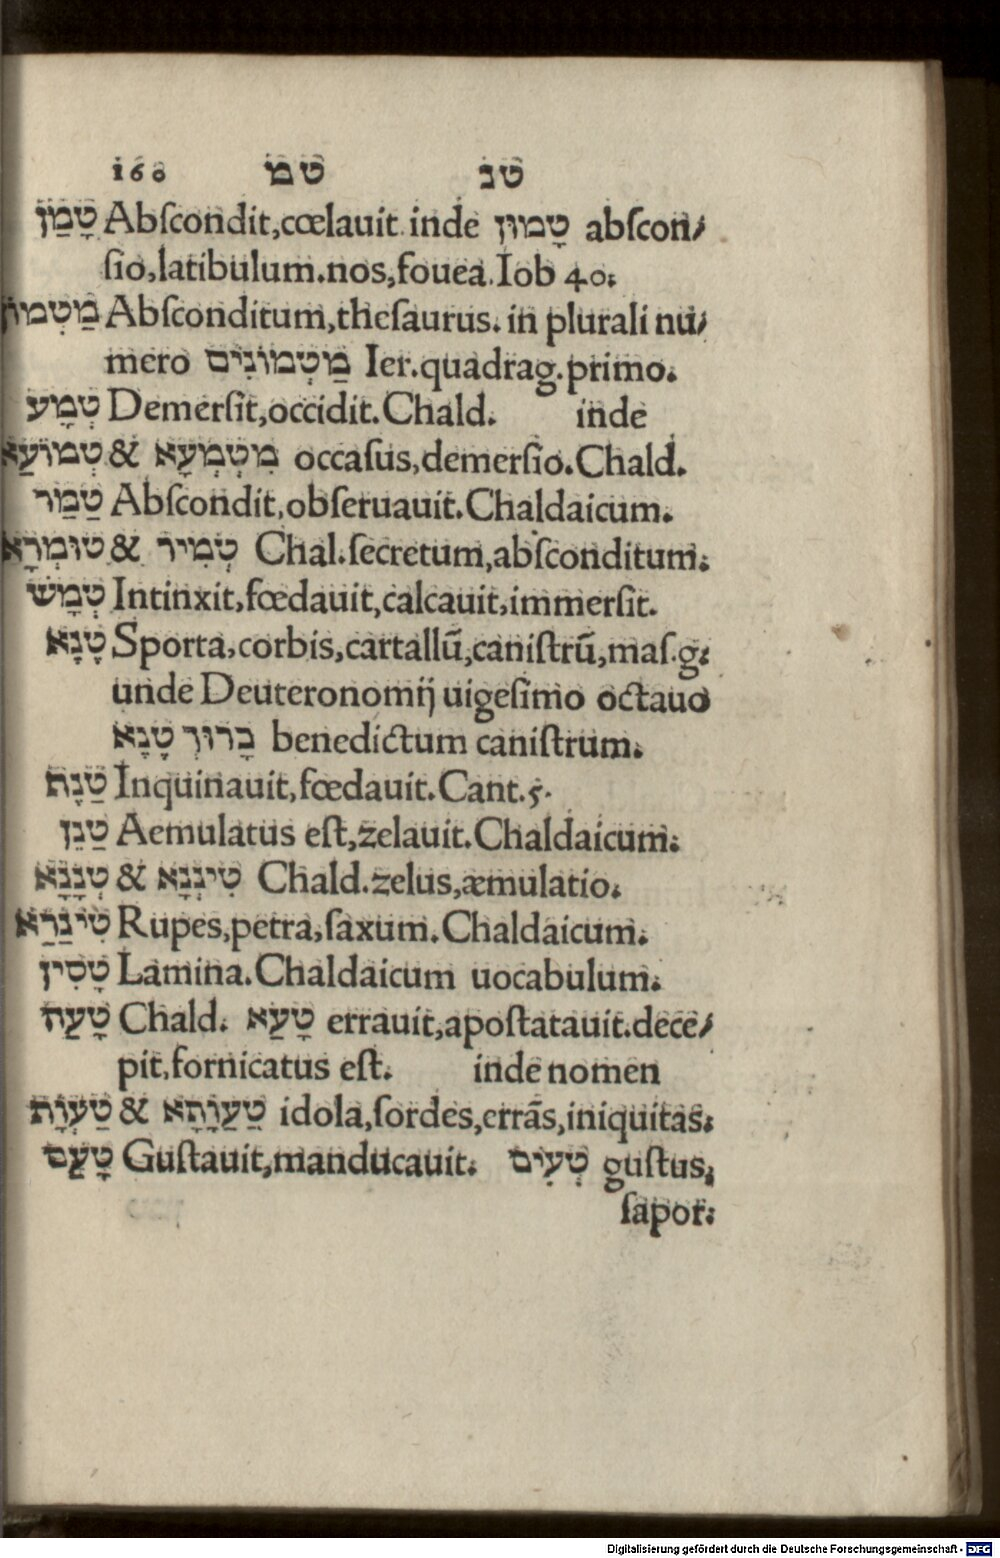 160 טמ טנ
טָמַן Abſcondit,cœlauit.inde טָמוּן abſcon/
ſio,latibulum.nos,fouea.Iob 40.
מַטְמוֹן Abſconditum,theſaurus.in plurali nu/
mero מַטְמוֹנִים Ier.quadrag.primo.
טְמָע Demerſit,occidit.Chald. inde
טְמוֹעַא & מִטְמְעָא occaſus,demerſio.Chald.
טַמַּר Abſcondit,obſeruauit.Chaldaicum.
טוּמְרָא & טְמִיר Chal.ſecretum,abſconditum.
טְמָשׁ Intinxit,fœdauit,calcauit,immerſit.
טָנָא Sporta,corbis,cartallū,caniſtrū,maſ.g.
unde Deuteronomij uigeſimo octauo
בָרוּךְ טָנָא benedictum caniſtrum.
טַנָּת Inquinauit,fœdauit.Cant.5.
טַנֵּן Aemulatus eſt,zelauit.Chaldaicum.
טְנָנָא & טִינְנָא Chald.zelus,æmulatio.
טִינַרַא Rupes,petra,ſaxum.Chaldaicum.
טָסִין Lamina.Chaldaicum uocabulum.
טָעַה Chald. טָעַא errauit,apoſtatauit.dece/
pit,fornicatus eſt. inde nomen
טַעְוָת & טַעֲוָתָא idola,ſordes,errās,iniquitas.
טָעַם Guſtauit,manducauit. טְעִים guſtus,
ſapor.
Digitalisierung gefördert durch die Deutsche Forschungsgemeinschaft - DFG